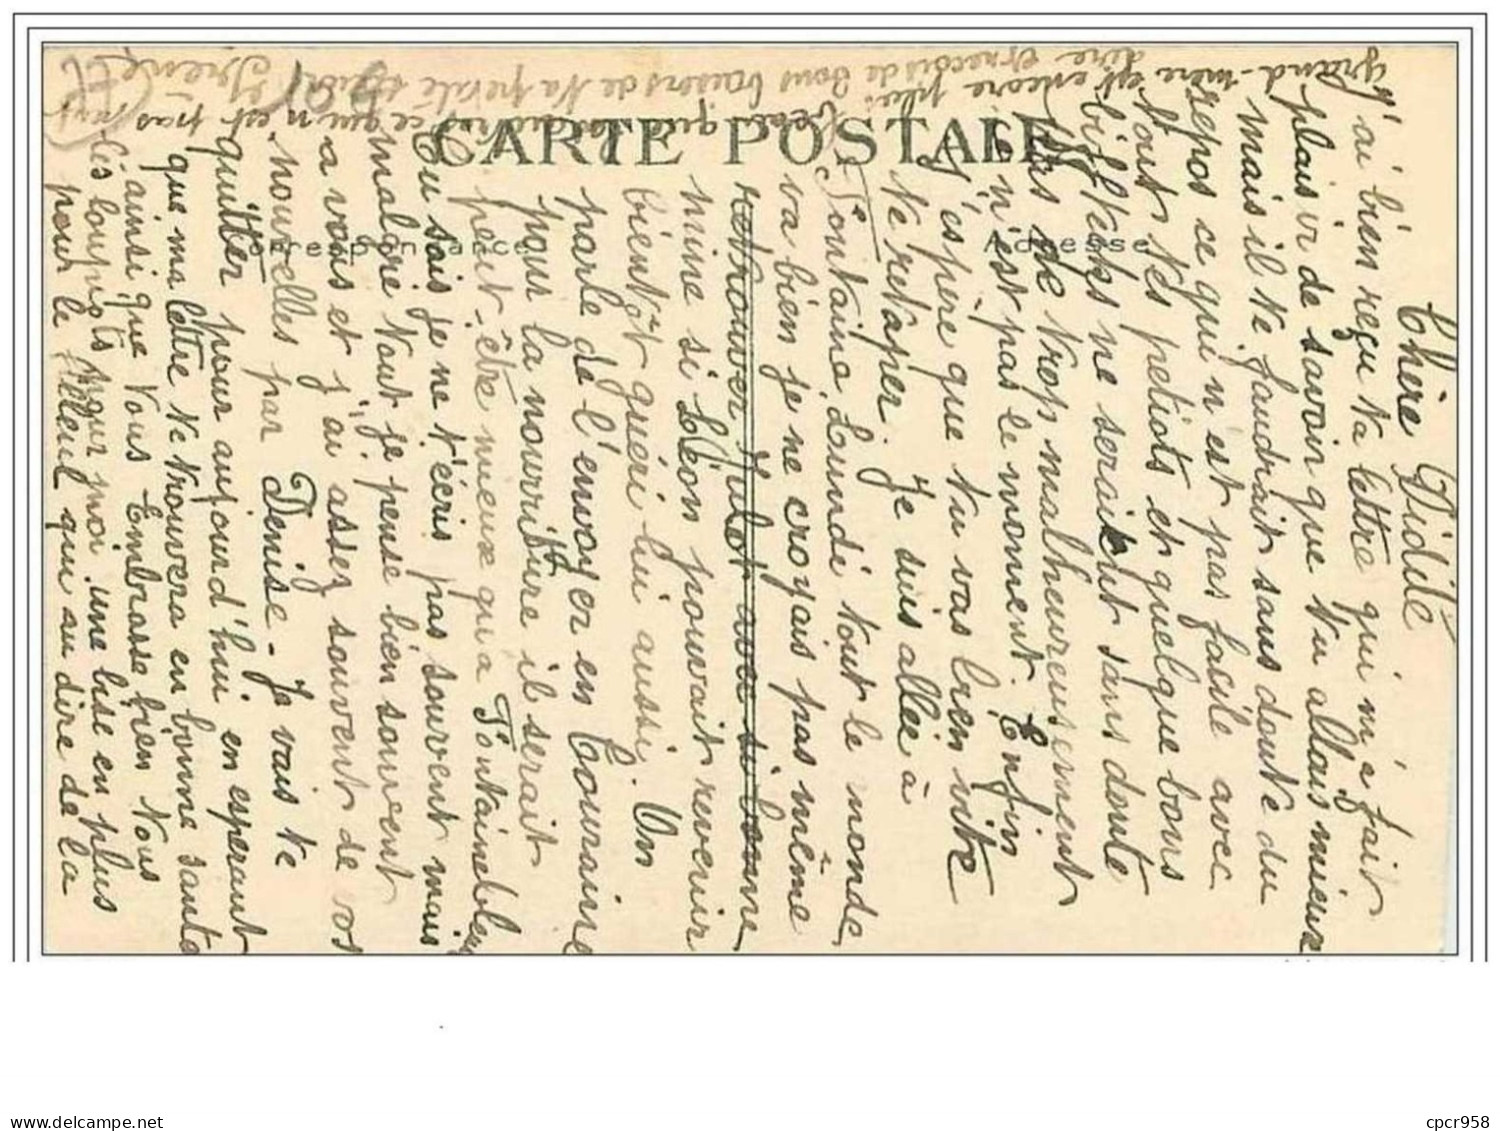 CARTE POSTALE
Correspondance
Adresse
Chère Didile
J'ai bien reçu ta lettre qui m'a fait
plaisir de savoir que tu allais mieux
mais il te faudrait sans doute du
repos ce qui n'est pas facile avec
tout tes petiots et quelque bons
biftecks ne seraient sans doute
pas de trop malheureusement
ce n'est pas le moment. Enfin
j'espère que tu vas bien vite
te retaper. Je suis allée à
Fontaine Lundi tout le monde
va bien je ne croyais pas même
retrouver Julot avec si bonne
mine si Léon pouvait revenir
bientôt guéri lui aussi. On
parle de l'envoyer en Touraine
pour la nourriture il serait
peut-être mieux qu'a Fontainebleau
Tu sais je ne t'écris pas souvent mais
malgré tout je pense bien souvent
a vous et j'ai assez souvent de vos
nouvelles par Denise - Je vais te
quitter pour aujourd'hui en esperant
que ma lettre te trouvera en bonne santé
ainsi que tous Embrasse bien tous
les loupiots pour moi une bise en plus
pour le filleul qui au dire de la
grand-mère est encore plus
beau que les autres ce qui n'est pas peu
dire reçois de bons baisers de ta petite sœur
Irène
cpcr958